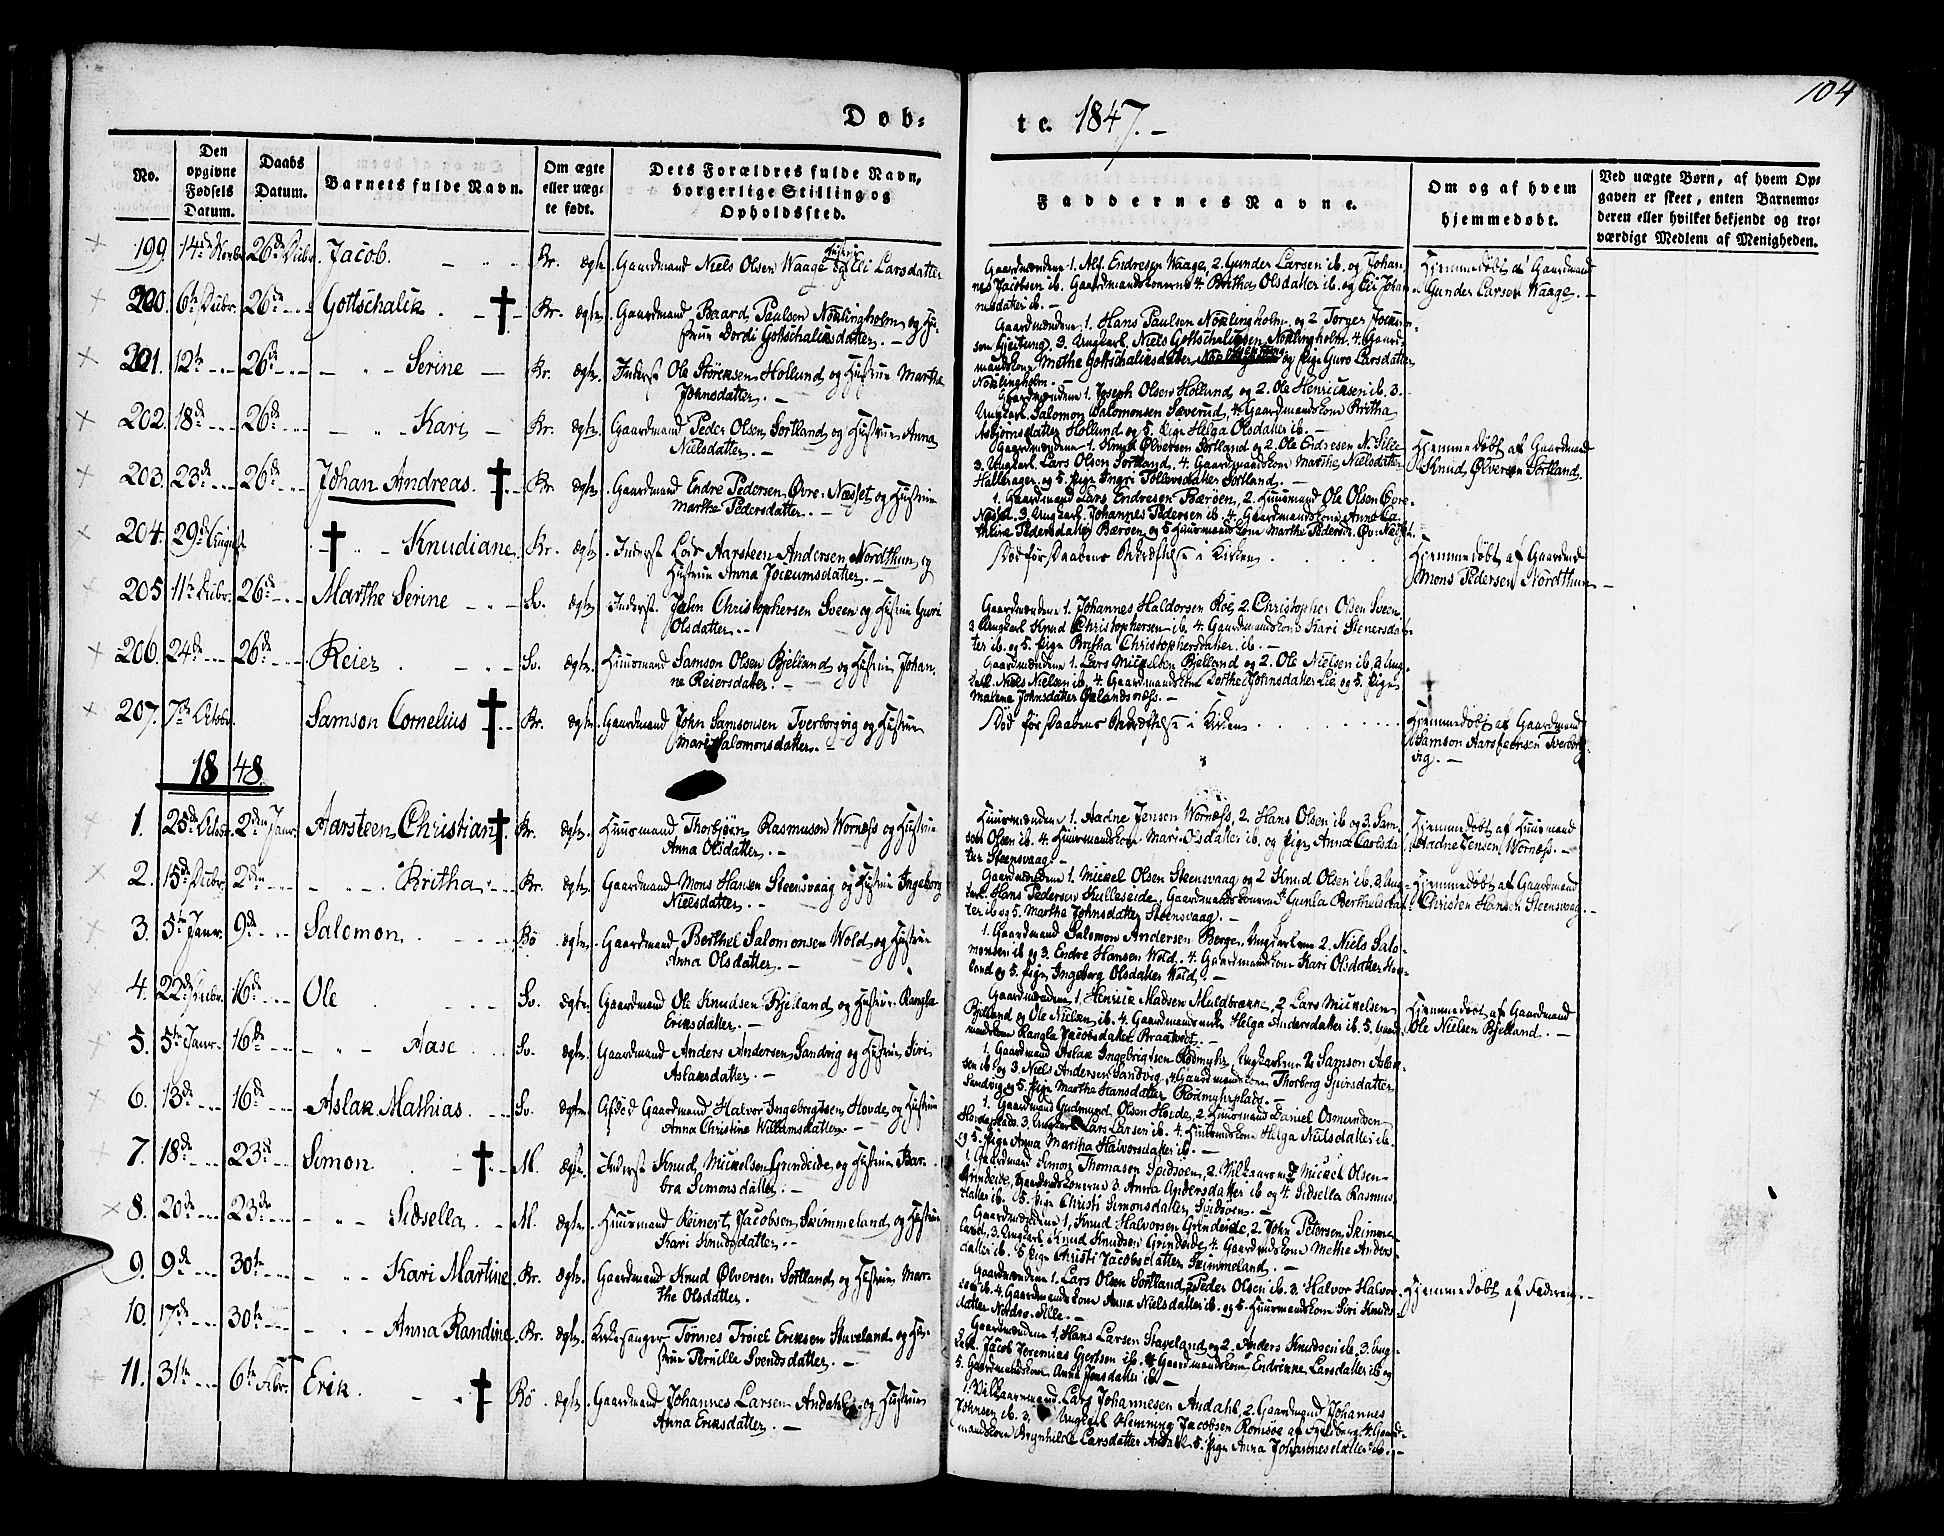 104
Døb-
te. 1847. –
No.
Den opgivne Fødsels Datum.
Daabs Datum.
Barnets fulde Navn.
Om ægte eller uæg-te født.
Dets Forældres fulde Navn, borgerlige Stilling og Opholdssted.
Faddernes Navne.
Om og af hvem hjemmedøbt.
Ved uægte Børn, af hvem Op-
gaven er skeet, enten Barnemo-
deren eller hvilket bekjendt og tro-
værdigt Medlem af Menigheden.
199 14de Novbr. 26de Decbr. Jacob. Br. ægte. Gaardmand Niels Olsen Waage og Hustrue Eli Larsdatter
Gaardmændene 1. Alf Endresen Waage, 2. Gunder Larsen ib. og Johan-
nes Jacobsen ib. Gaardmandskonerne 4. Britha Olsdatter ib. og Eli Johan-
nesdatter ib. –
Hjemmedøbt af Gaardmand
Gunder Larsen Waage. –
200. 6te Decbr. 26de Gottschalk. Br. ægte. Gaardmand Baard Paulsen Nøklingholm og Hu-
strue Dordi Gottschalksdatter. –
Gaardmændene 1. Hans Paulsen Nøklingholm og 2 Torger
3. Ungkarl Niels Gottschalksen Nøklingholm. 4. Gaard-
mandskone Methe Gottschalksdatter og Pige Guro Larsdatter
Nøklingholm. –
201. 12te 26de Serine Br. ægte. Inderst Ole Størksen Hollund og Hustrue Martha
Johnsdatter. –
Gaardmændene 1. Joseph Olsen Hollund og 2. Ole Henricksen ib. 3.
Ungkarl Salomon Salomonsen Sæverud, 4. Gaardmandskone Britha
Asbjørnsdatter Hollund og 5. Pige Helga Olsdatter ib. –
202. 18de 26de Kari Br. ægte. Gaardmand Peder Olsen Sortland og Hustrue Anna
Nielsdatter. –
Gaardmændene 1. Knud Ølversen Sortland og 2. Ole Endresen N. Sille
3. Ungkarl Lars Olsen Sortland. 4. Gaardmandskone Marthe Nielsdatter
Hallerager og 5. Pige Ingri Tollevsdatter Sortland. –
Hjemmedøbt af Gaardmand
Knud Ølversen Sortland.
203. 23de 26de Johan Andreas. Br. ægte. Gaardmand Endre Pedersen Øvre-Næsset og Hustrue
Marthe Pedersdatter. –
1. Gaardmand Lars Endresen Bærøen, 2. Huusmand Ole Olsen Øvre-
Næsset. 3. Ungkarl Johannes Pedersen ib. 4. Gaardmandskone Anne Ca-
thrine Pedersdatter Bærøen og 5 Huusmandskone Marthe Pedersdt. Øv. Næsset.
204. 29de August Knudiane. Br. ægte. Inderst Aarsteen Andersen Nordthun og
Hustrue Anna Jockumsdatter. –
Død før Daabens Bekræftelse i Kirken
Hjemmedøbt af Gaardmand
Mons Pedersen Nordthun –
205 11te Decbr. 26de Marthe Serine Sv. ægte. Inderst. John Christophersen Sveen og Hustrue Guri
Olsdatter. –
Gaardmændene 1. Johannes Haldorsen Røe, 2. Christopher Olsen Sveen
3 Ungkarl Knud Christophersen ib. 4. Gaardmandskone Kari Stenersdat-
ter ib. og 5. Pige Britha Christophersdatter ib. –
206. 24de 26de Reier Sv. ægte. Huusmand Samson Olsen Bjelland og Hustrue Johan-
ne Reiersdatter. –
Gaardmændene 1. Lars Mickelsen Bjelland og 2. Ole Nielsen ib, 3. Ung-
karl Niels Nielsen ib. 4. Gaardmandskone Dorthe Johnsdatter Lie og 5. Pige
Malene Johnsdatter
207. 7de Octobr. Samson Cornelius Br. ægte. Gaardmand John Samsonsen Tverborgvig og Hustrue
Mari Salomonsdatter. –
Død før Daabens Bekræftelse i Kirken
Hjemmedøbt af Gaardmand
Samson Aarsteensen Tverborg-
vig. –
1848.
1. 25de Octobr. 2den Janr. Aarsteen Christian Br. ægte. Huusmand Thorbjørn Rasmussen Wornæss og Hustrue
Anna Olsdatter. –
Huusmændene 1. Aadne Jensen Wornæss, 2. Hans Olsen ib og 3. Sam-
son Olsen ib. 4. Huusmandskone Mari Olsdatter ib. og Pige Anna Carlsdat-
ter Steensvaag. –
Hjemmedøbt af Huusmand
Aadne Jensen Wornæss. –
2. 15de Decbr. 2den Britha Br. ægte. Gaardmand Mons Hansen Steensvaag og Hustrue Ingeborg
Nielsdatter. –
Gaardmændene 1. Mickel Olsen Steensvaag og 2 Knud Olsen ib. 3. Ung-
karl Hans Pedersen Kulleseide, Gaardmandskonerne 4 Gunla Berthelsdat-
ter ib og 5. Marthe Johnsdatter Steensvaag. –
Hjemmedøbt af Gaardmand
Christen Hansen Steensvaag. –
3. 5te Janr. 9de Salomon Bø ægte. Gaardmand Berthel Salomonsen Wold og Hustrue
Anna Olsdatter. –
1. Gaardmand Salomon Andersen Berge, Ungkarlene 2. Niels Salo-
monsen ib og 3. Endre Hansen Wold. 4. Gaardmandskone Kari Olsdatter Hov-
land og 5. Pige Ingeborg Olsdatter Wold. –
4. 22de Decbr. 16de Ole Sv. ægte. Gaardmand Ole Knudsen Bjelland og Hustrue Rangla
Eriksdatter. –
Gaardmændene 1. Henrick Madsen Muldbrænne, 2 Lars Mickelsen
Bjelland og Ole Nielsen ib. 4. Gaardmandsenke Helga Andersdatter ib. 5. Gaard-
mandskone Rangla Jacobsdatter Braatveit. –
Hjemmedøbt af Gaardmand
Ole Nielsen Bjelland. –
5. 5te Janr. 16de Aase Sv. ægte. Gaardmand Anders Andersen Sandvig og Hustrue Siri
Aslaksdatter. –
1. Gaardmand Aslak Ingebrigtsen Rødmyhr, Ungkarlene 2 Samson Aslak-
sen ib og 3. Niels Andersen Sandvig. 4 Gaardmandskone Thorborg Sjursdatter
Sandvig og 5. Pige Marthe Hansdatter Rødmyhrplads. –
6. 13de 16de Aslak Mathias. Sv. ægte. Afdød Gaardmand Halvor Ingebrigtsen Hovde og Hustrue
Anna Christine Willumsdatter. –
1. Gaardmand Gudmund Olsen Hovde, 2. Huusmand Daniel Osmundsen
Hovdeplads. 3. Ungkarl Lars Larsen ib. 4. Huusmandskone Helga Nielsdatter ib.
og 5. Pige Anna Martha Halvorsdatter ib. –
7. 18de 23de Simon M. ægte. Inderst Knud Mickelsen Grindeide og Hustrue Bar-
bra Simonsdatter. –
1. Gaardmand Simon Thomasen Spidsøen, 2. Vilkaarsmd. Mickel Olsen
Grindeide, Gaardmandskonerne 3 Anna Andersdatter ib og 4 Sidsella Rasmus-
datter ib. 5. Pige Christi Simonsdatter Spidsøen. –
8. 20de 23de Sidsella M. ægte. Huusmand Reinert Jacobsen Skimmeland og Hustrue
Kari Knudsdatter. –
Gaardmændene 1. Knud Halvorsen Grindeide, 2. John Petersen Skimme-
land, 3. Ungkarl Knud Knudsen Grindeide 4. Gaardmandskone Methe Anders-
datter ib. 5. Pige Christi Jacobsdatter Skimmeland. –
9. 9de 30te Kari Martine Br. ægte. Gaardmand Knud Ølversen Sortland og Hustrue Mar-
the Olsdatter.
Gaardmændene 1. Lars Olsen Sortland, 2. Peder Olsen ib. 3. Halvor Halvor-
sen ib. 4. Gaardmandskone Anna Nielsdatter ib. og 5. Huusmandskone Siri Knuds-
datter Nordre-Sille. –
Hjemmedøbt af Faderen. –
10. 17de 30te Anna Randine Br. ægte. Kirkesanger Tønnes Troiel Eriksen Staveland og Hu-
strue Pernille Svendsdatter. –
Gaardmændene 1. Hans Larsen Staveland og 2. Anders Knudsen ib. 3. Ung-
karl Jacob Jeremias Gjertsen ib. 4 Gaardmandskone Endrienne Larsdatter ib og
5. Gaardmandskone Anna Jensdatter ib. –
11. 31te 6te Febr. Erik. Bø ægte. Gaardmand Johannes Larsen Andahl og Hustrue
Anna Eriksdatter. –
1. Vilkaarsmand Lars Johannesen Andahl, 2. Gaardmand Johannes
Iversen ib. 3. Ungkarl Hemming Jacobsen Romsøe af Fjeldberg, 4. Gaard-
mandskone Brynhilde Larsdatter Andahl 5. Pige Anna Johannesdatter ib. –